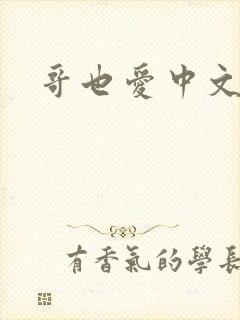 哥也愛中文
有香氣的學長